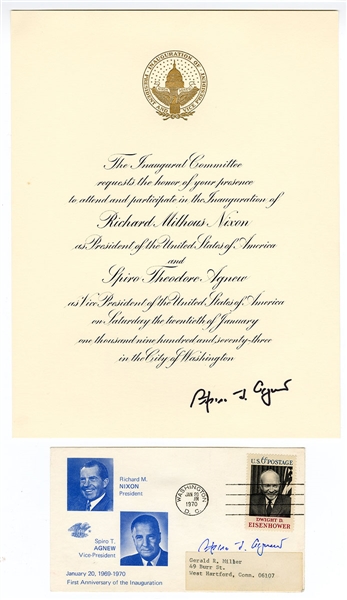 INAUGURATION OF
PRESIDENT AND VICE PRESIDENT
The Inaugural Committee
requests the honor of your presence
to attend and participate in the Inauguration of
Richard Milhous Nixon
as President of the United States of America
and
Spiro Theodore Agnew
as Vice President of the United States of America
on Saturday the twentieth of January
one thousand nine hundred and seventy-three
in the City of Washington
Spiro T. Agnew
Richard M.
NIXON
President
Spiro T.
AGNEW
Vice-President
January 20, 1969-1970
First Anniversary of the Inauguration
WASHINGTON
JAN 20
1970
D. C.
U.S. 6¢ POSTAGE
DWIGHT D.
EISENHOWER
Spiro T. Agnew
Gerald R. Miller
49 Burr St.
West Hartford, Conn. 06107